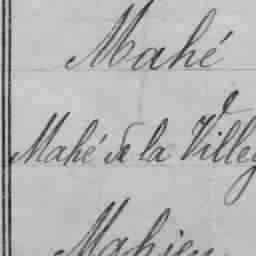 Mahé
Mahé de la Villeg
Mahieu